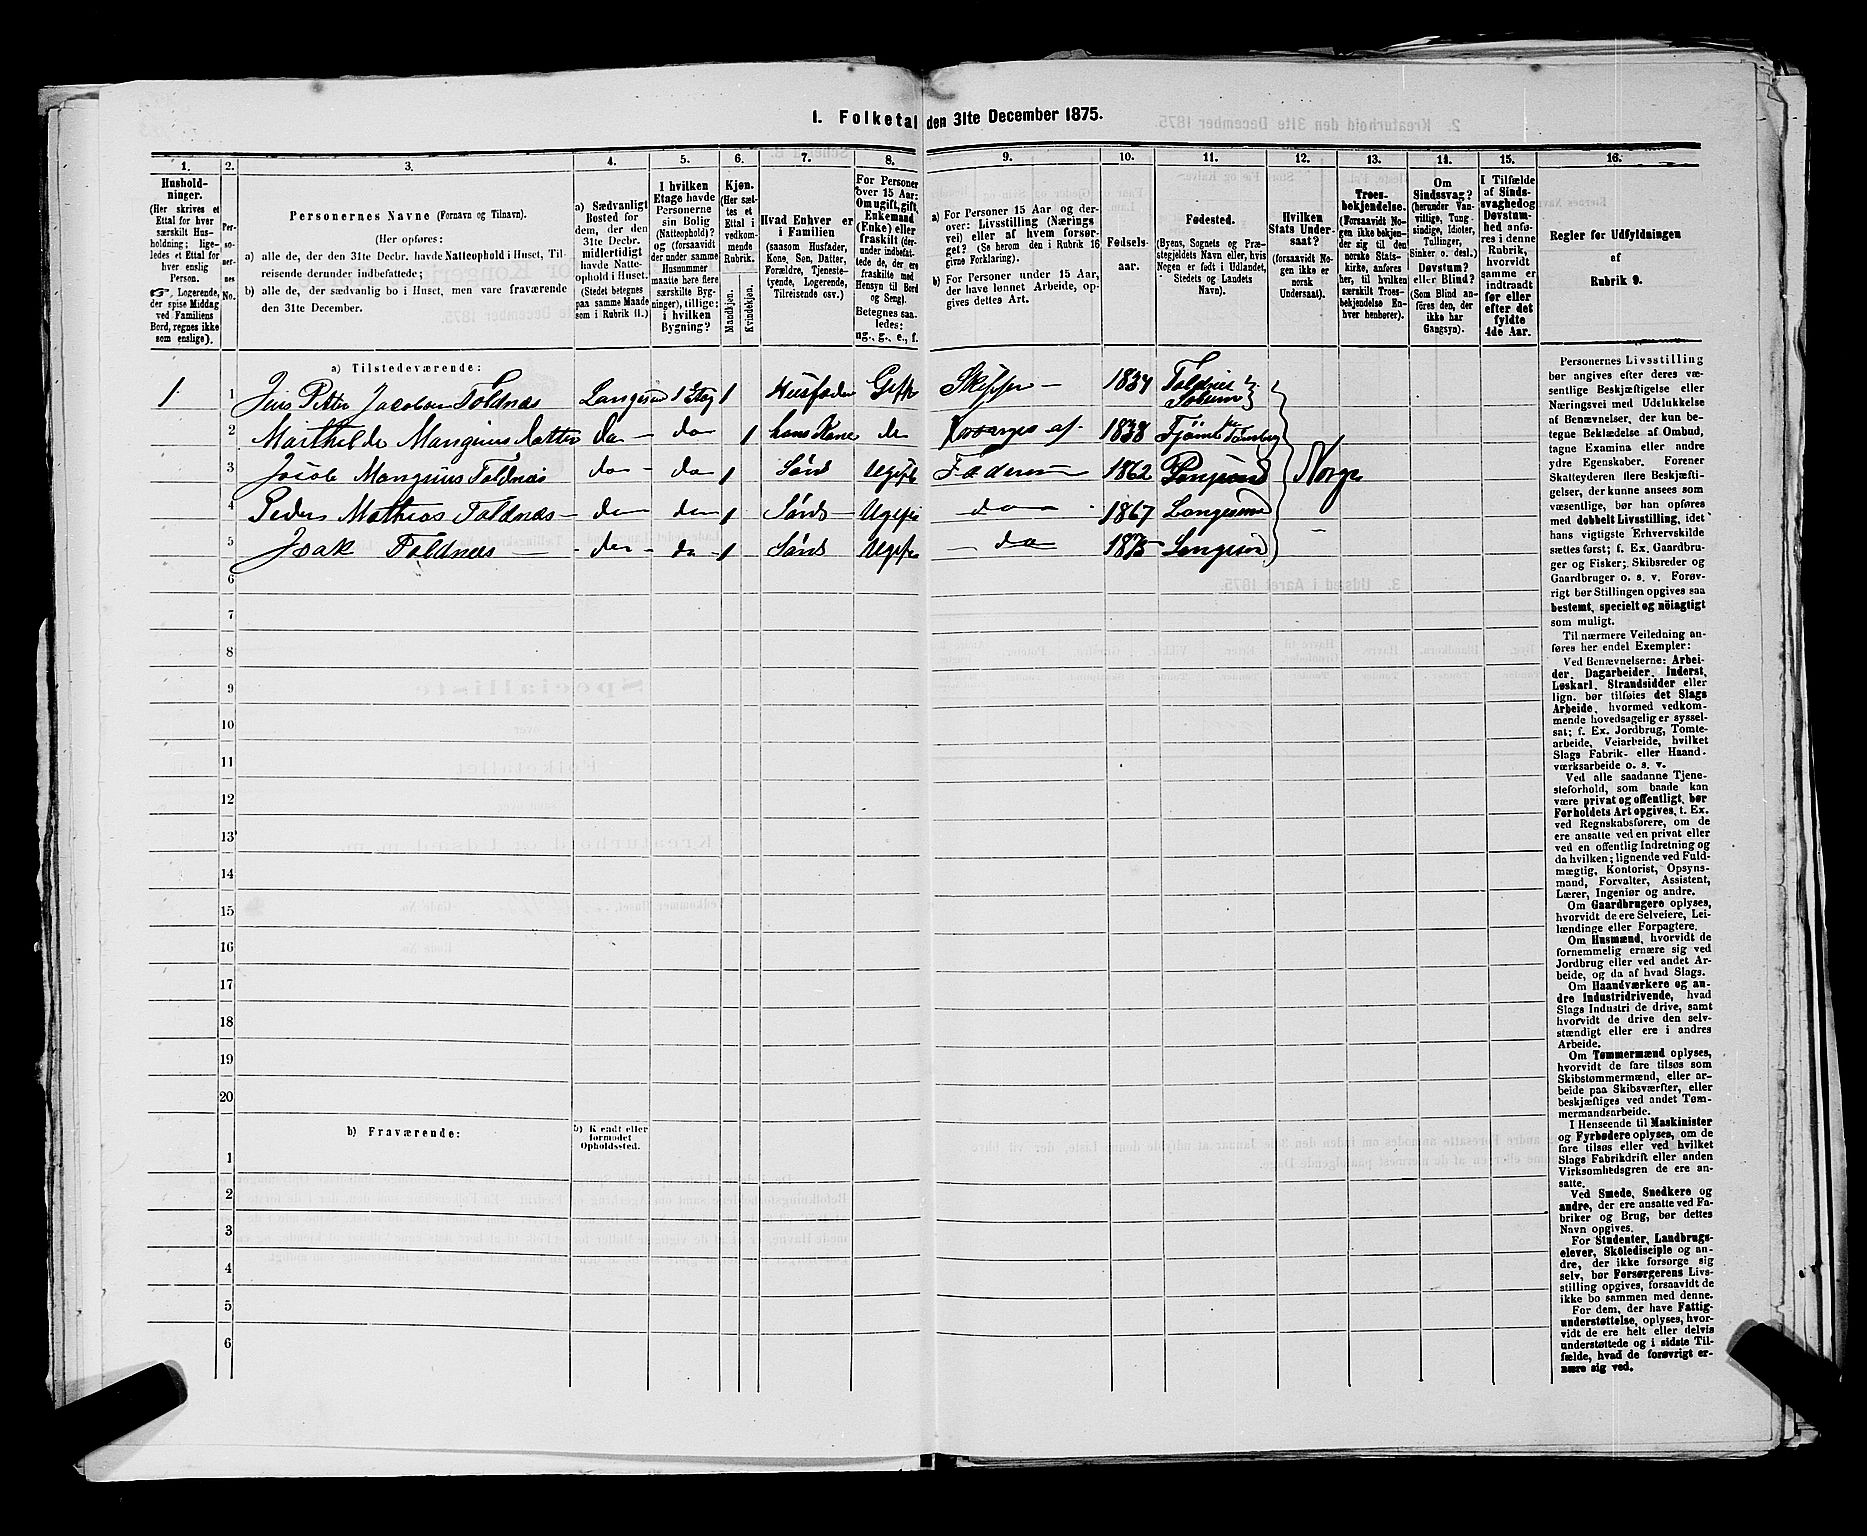 1. Folketal den 31te December 1875.
1. 2. 3. 4. 5. 6. 7. 8. 9. 10. 11. 12. 13. 14. 15. 16.
Hushold-
ninger.
(Her skrives et
Ettal for hver
særskilt Hus-
holdning; lige-
ledes et Ettal for
hver enslig
Person.
☞ Logerende,
der spise Middag
ved Familiens
Bord, regnes ikke
som enslige).
Per-
so-
ner-
nes
No.
Personernes Navne (Fornavn og Tilnavn).
(Her opføres:
a) alle de, der den 31te Decbr. havde Natteophold i Huset, Til-
reisende derunder indbefattede;
b) alle de, der sædvanlig bo i Huset, men vare fraværende
den 31te December.
a) Sædvanligt
Bosted for
dem, der den
31te Decbr.
midlertidigt
havde Natte-
ophold i Huset.
(Stedet betegnes
paa samme Maade
som i Rubrik 11.)
I hvilken
Etage havde
Personerne
sin Bolig
(Natteophold)?
og (forsaavidt
der under samme
Husnummer
maatte høre flere
særskilte Byg-
ninger), tillige:
i hvilken
Bygning?
Kjøn.
(Her sæt-
tes et
Ettal i
vedkom-
mende
Rubrik.
Mandkjøn.
Kvindekjøn.
Hvad Enhver er
i Familien
(saasom Husfader,
Kone, Søn, Datter,
Forældre, Tjeneste-
tyende, Logerende,
Tilreisende osv.)
For Personer
over 15 Aar:
Om ugift, gift,
Enkemand
(Enke) eller
fraskilt (der-
under indbefat-
tede de, der ere
fraskilte med
Hensyn til Bord
og Seng).
Betegnes saa-
ledes:
ug., g., e., f.
a) For Personer 15 Aar og der-
over: Livsstilling (Nærings-
vei) eller af hvem forsør-
get? (Se herom den i Rubrik 16
givne Forklaring).
b) For Personer under 15 Aar,
der have lønnet Arbeide, op-
gives dettes Art.
Fødsels-
aar.
Fødested.
(Byens, Sognets og Præ-
stegjeldets Navn eller, hvis
Nogen er født i Udlandet,
Stedets og Landets
Navn).
Hvilken
Stats Under-
saat?
(forsaavidt No-
gen ikke er
norsk
Undersaat).
Troes-
bekjendelse.
(Forsaavidt No-
gen ikke bekjen-
der sig til den
norske Stats-
kirke, anføres
her, til hvilken
særskilt Troes-
bekjendelse En-
hver henhører).
Om
Sindssvag?
(herunder Van-
vittige, Tung-
sindige, Idioter,
Tullinger,
Sinker o. desl.)
Døvstum?
eller Blind?
(Som Blind an-
føres den, der
ikke har
Gangsyn).
I Tilfælde
af Sinds-
svaghed og
Døvstum-
hed anfø-
res i denne
Rubrik,
hvorvidt
samme er
indtraadt
før eller
efter det
fyldte
4de Aar.
Regler for Udfyldningen
af
Rubrik 9.
a) Tilstedeværende:
1 1 Jens Petter Jacobsen Foldnæs Langesund 1 Etag 1 Husfader Gift Skipper — 1834 Foldnæs
2 Marthilde Mangnus datter do — do 1 hans Kone do Forsørges af 1838 Fjömt Tønsberg
3 Jacob Mangnus Foldnæs do — do 1 Sönd Ugift Faderen 1862 Langesund Norge
4 Peder Mathias Foldnæs — do do 1 Sönd Ugift do 1867 Langesund
5 Isak Foldnæs — do — do 1 Sönd Ugift — do 1875 Langesund —
6
7
8
9
10
11
12
13
14
15
16
17
18
19
20
b) Fraværende:
b) Kjendt eller
formodet
Opholdssted.
1
2
3
4
5
6
Personernes Livsstilling
bør angives efter deres væ-
sentlige Beskjæftigelse eller
Næringsvei med Udelukkelse
af Benævnelser, der kun be-
tegne Beklædelse af Ombud,
tagne Examina eller andre
ydre Egenskaber. Forener
Skatteyderen flere Beskjæfti-
gelser, der kunne ansees som
væsentlige, bør han opføres
med dobbelt Livsstilling, idet
hans vigtigste Erhvervskilde
sættes først; f. Ex. Gaardbru-
ger og Fisker; Skibsreder og
Gaardbruger o. s. v. Forøv-
rigt bør Stillingen opgives saa
bestemt, specielt og nöiagtigt
som muligt.
Til nærmere Veiledning an-
føres her endel Exempler:
Ved Benævnelserne: Arbei-
der, Dagarbeider, Inderst,
Løskarl, Strandsidder eller
lign. bør tilføies det Slags
Arbeide, hvormed vedkom-
mende hovedsagelig er syssel-
sat; f. Ex. Jordbrug, Tomte-
arbeide, Veiarbeide, hvilket
Slags Fabrik- eller Haand-
værksarbeide o. s. v.
Ved alle saadanne Tjene-
steforhold, som baade kan
være privat og offentligt, bør
Forholdets Art opgives, t. Ex.
ved Regnskabsførere, om de
ere ansatte ved en privat eller
ved en offentlig Indretning og
da hvilken; lignende ved Fuld-
mægtig, Kontorist, Opsyns-
mand, Forvalter, Assistent,
Lærer, Ingeniør og andre.
Om Gaardbrugere oplyses,
hvorvidt de ere Selveiere, Lei-
lændinge eller Forpagtere.
Om Husmænd, hvorvidt de
fornemmelig ernære sig ved
Jordbrug eller ved andet Ar-
beide, og da af hvad Slags.
Om Haandværkere og an-
dre Industridrivende, hvad
Slags Industri de drive, samt
hvorvidt de drive den selv-
stændigt eller ere i andres
Arbeide.
Om Tømmermænd oplyses,
hvorvidt de fare tilsøs som
Skibstømmermænd, eller ar-
beide paa Skibsværfter, eller
beskjæftiges ved andet Tøm-
mermandsarbeide.
I Henseende til Maskinister
og Fyrbødere oplyses, om de
fare tilsøs eller ved hvilket
Slags Fabrikdrift eller anden
Virksomhedsgren de ere an-
satte.
Ved Smede, Snedkere og
andre, der ere ansatte ved Fa-
briker og Brug, bør dettes
Navn opgives.
For Studenter, Landbrugs-
elever, Skoledisciple og an-
dre, der ikke forsørge sig
selv, bør Forsørgerens Livs-
stilling opgives, forsaavidt de
ikke bo sammen med denne.
For dem, der have Fattig-
understøttelse, oplyses, hvor-
vidt de ere helt eller delvis
understøttede og i sidste Til-
fælde, hvad de forøvrigt er-
nære sig ved.